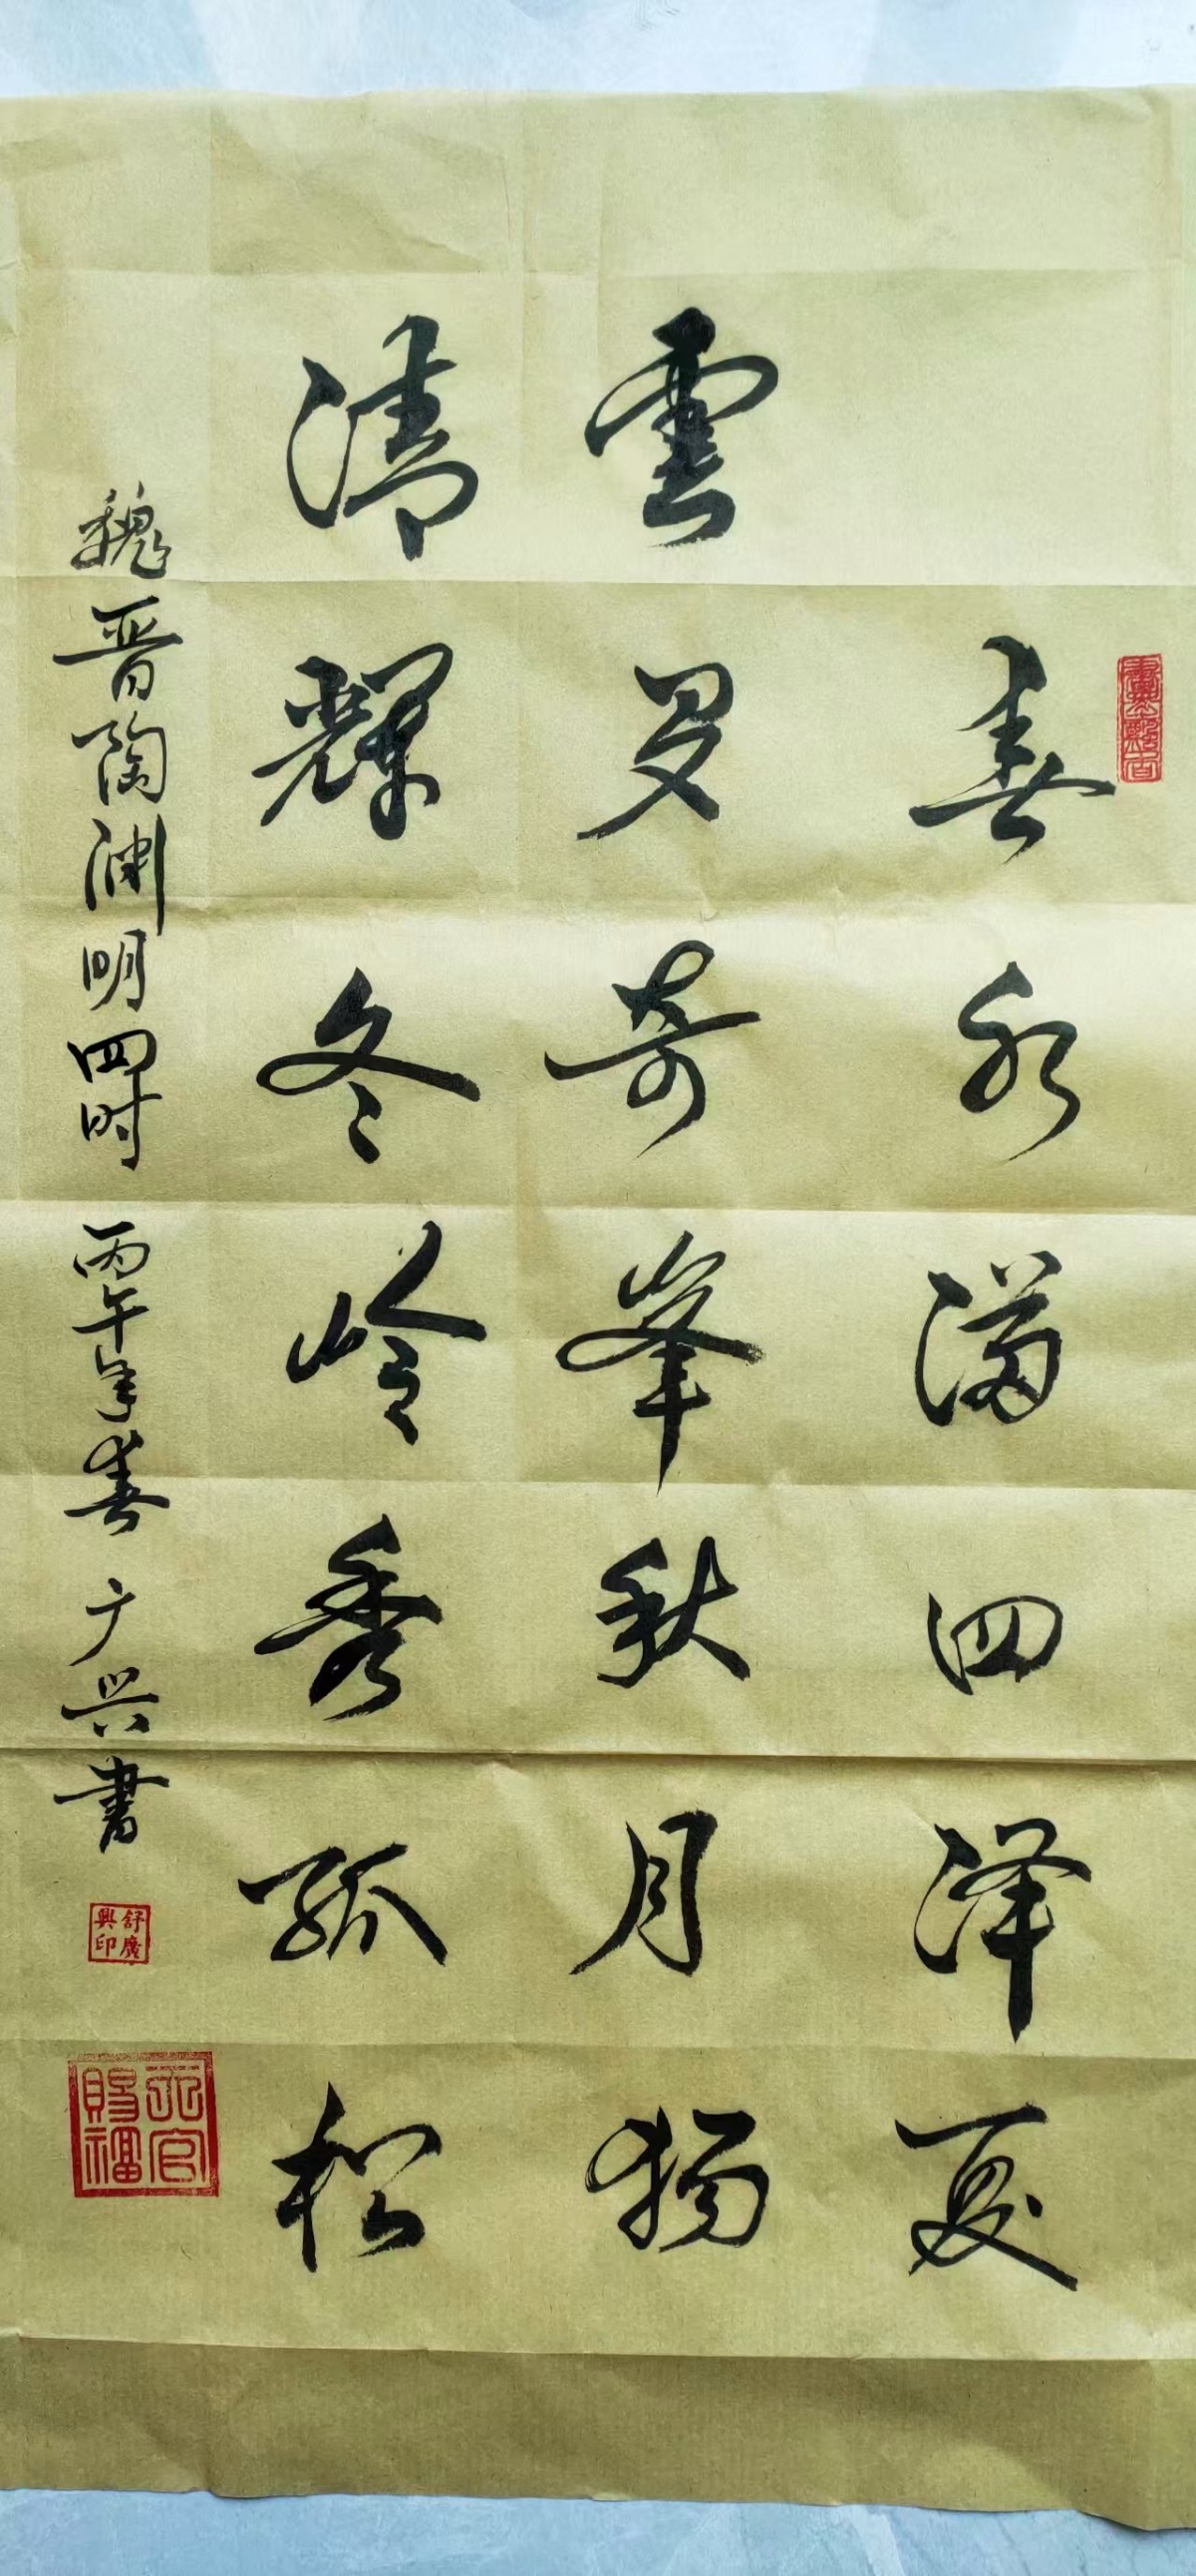 春水满四泽夏
雲多奇峯秋月揚
清輝冬岭秀孤松
魏晋陶渊明四时 丙午年春 广兴書
舒廣興印
天官賜福